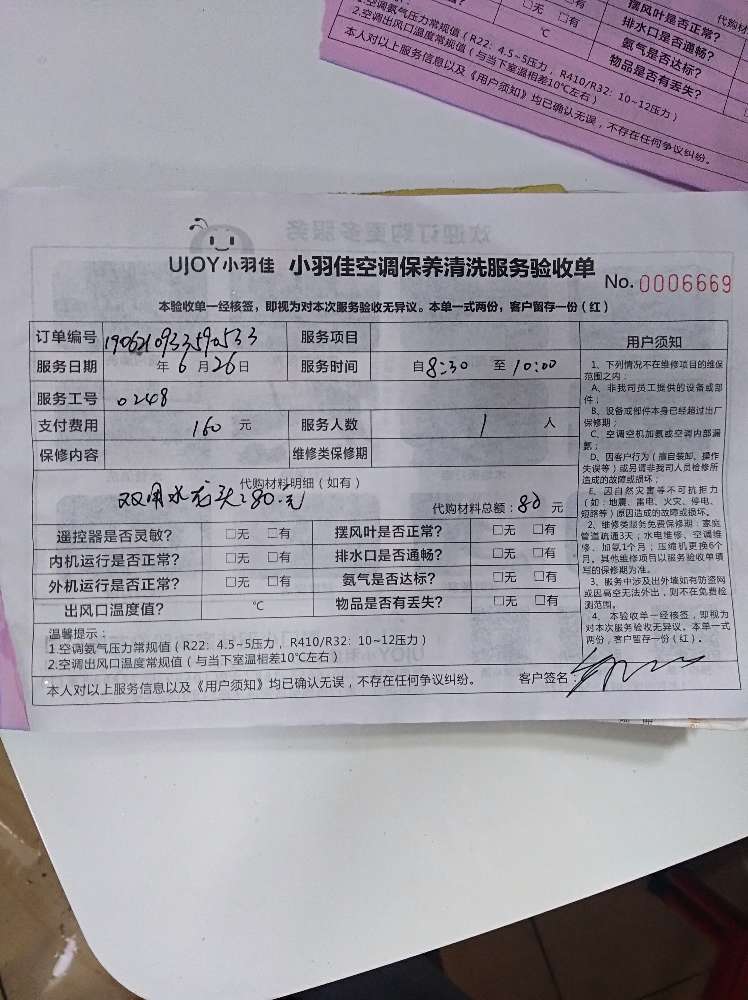 □无 □有
1.空调氨气压力常规值（R22: 4.5~5压力， R410/R32: 10~12压力）
2.空调出风口温度常规值（与当下室温相差10℃左右）
本人对以上服务信息以及《用户须知》均已确认无误，不存在任何争议纠纷。
℃
摆风叶是否正常？
排水口是否通畅？
氨气是否达标？
物品是否有丢失？
代购材
欢迎订购更多服务
UJOY小羽佳 小羽佳空调保养清洗服务验收单 No. 0006669
本验收单一经核签，即视为对本次服务验收无异议。本单一式两份，客户留存一份（红）
订单编号 1906210933590533 服务项目
服务日期 年 6 月 26 日 服务时间 自 8:30 至 10:00
服务工号 0248
支付费用 160 元 服务人数 1 人
保修内容 维修类保修期
代购材料明细（如有）
双用水龙头:80.元 代购材料总额: 80 元
遥控器是否灵敏？ □无 □有 摆风叶是否正常？ □无 □有
内机运行是否正常？ □无 □有 排水口是否通畅？ □无 □有
外机运行是否正常？ □无 □有 氨气是否达标？ □无 □有
出风口温度值？ ℃ 物品是否有丢失？ □无 □有
温馨提示：
1.空调氨气压力常规值（R22: 4.5~5压力， R410/R32: 10~12压力）
2.空调出风口温度常规值（与当下室温相差10℃左右）
本人对以上服务信息以及《用户须知》均已确认无误，不存在任何争议纠纷。 客户签名：
用户须知
1、下列情况不在维修项目的维保
范围之内：
A、非我司员工提供的设备或部
件；
B、设备或部件本身已经超过出厂
保修期；
C、空调空机加氨或空调内部漏
氨；
D、因客户行为（擅自装卸、操作
失误等）或另请非我司人员检修所
造成的故障或损坏；
E、因自然灾害等不可抗拒力
（如：地震、雷电、火灾、停电、
短路等）原因造成的故障或损坏。
2、维修类服务免费保修期：家庭
管道疏通3天；水电维修、空调维
修、加氨1个月；压缩机更换6个
月。其他维修项目以服务验收单填
写的保修期为准。
3、服务中涉及出外墙如有防盗网
或因高空无法外出，则不在免费检
测范围。
4、本验收单一经核签，即视为
对本次服务验收无异议。本单一式
两份，客户留存一份（红）。